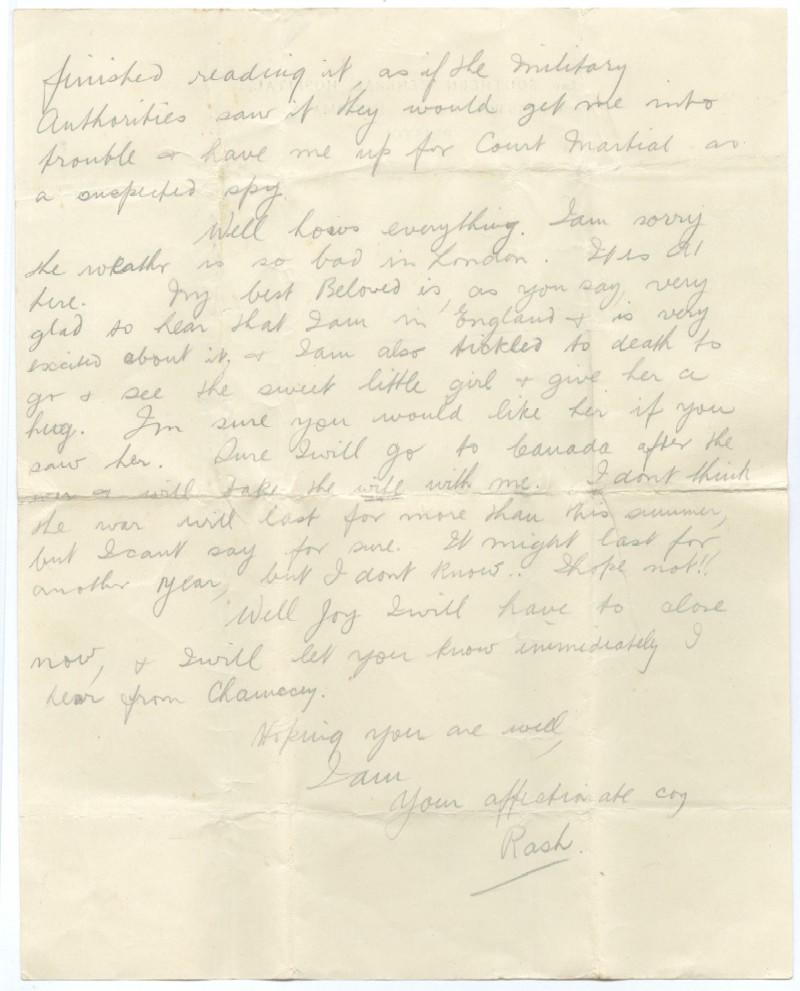 finished reading it, as if the Military
Authorities saw it they would get me into
trouble & have me up for Court Martial as
a suspected spy.
Well hows everything. I am sorry
the weather is so bad in London. It is A1
here. My best Beloved is, as you say, very
glad to hear that I am in England & is very
excited about it, & I am also tickled to death to
go & see the sweet little girl & give her a
hug. I'm sure you would like her if you
saw her. Sure I will go to Canada after the
war & will take the wife with me. I dont think
the war will last for more than this summer,
but I cant say for sure. It might last for
another year, but I dont know.. I hope not!!
Well Joy I will have to close
now, & I will let you know immediately I
hear from Chauncey.
Hoping you are well,
I am
Your affectionate coz
Rash.